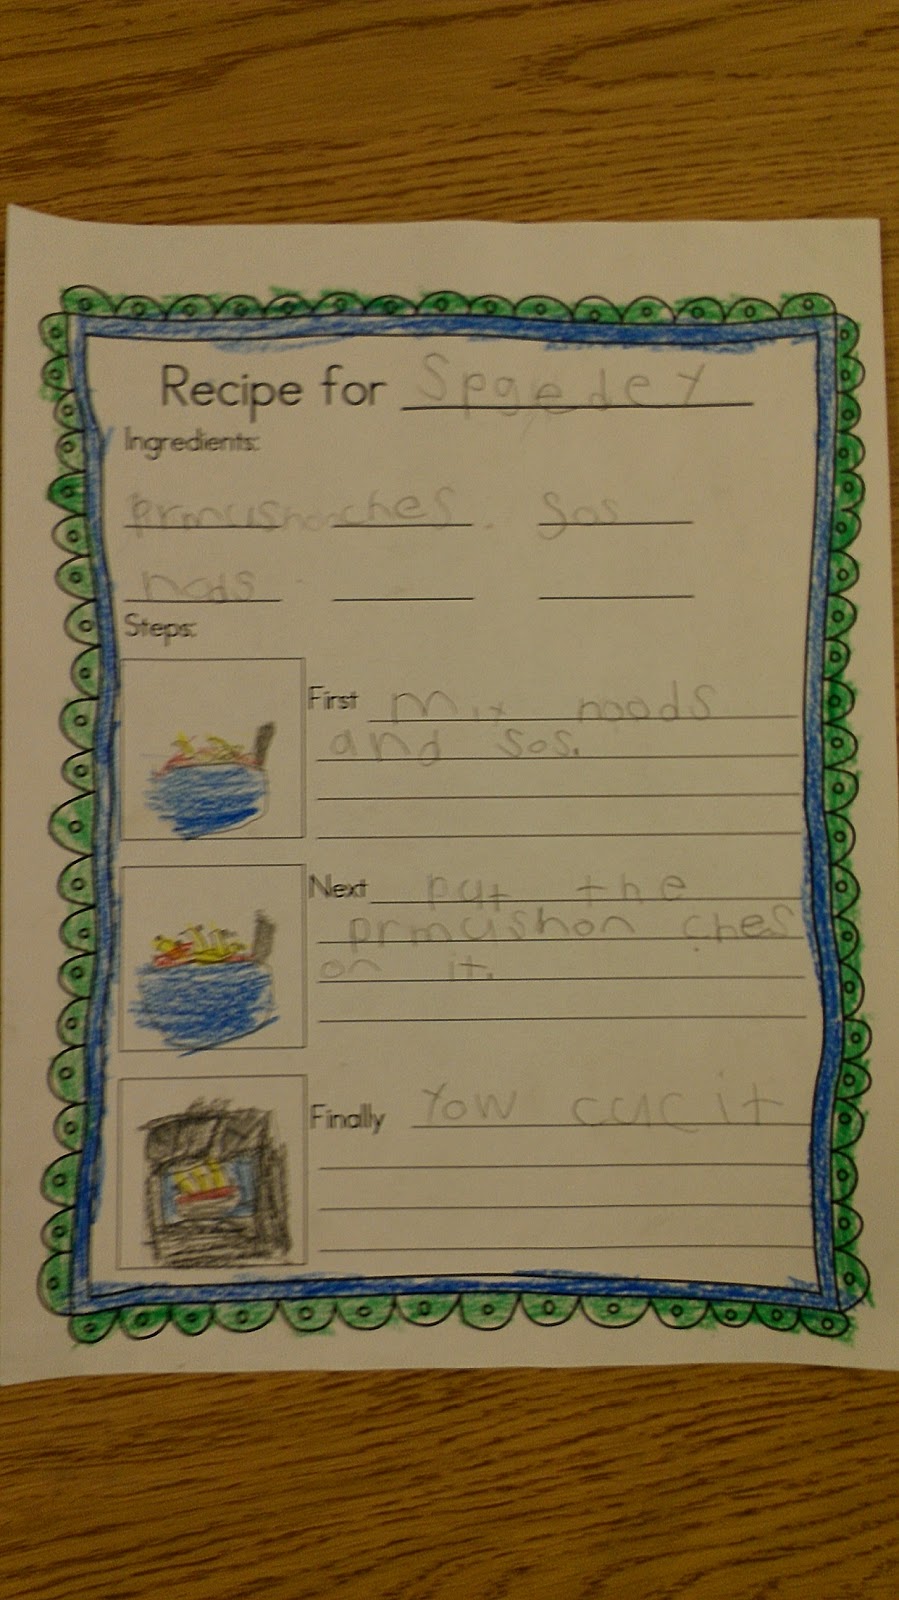 Recipe for Spgedey
Ingredients:
prmushonches. Sos
nods
Steps:
First mix noods
and sos.
Next put the
prmushon ches
on it.
Finally Yow cuc it